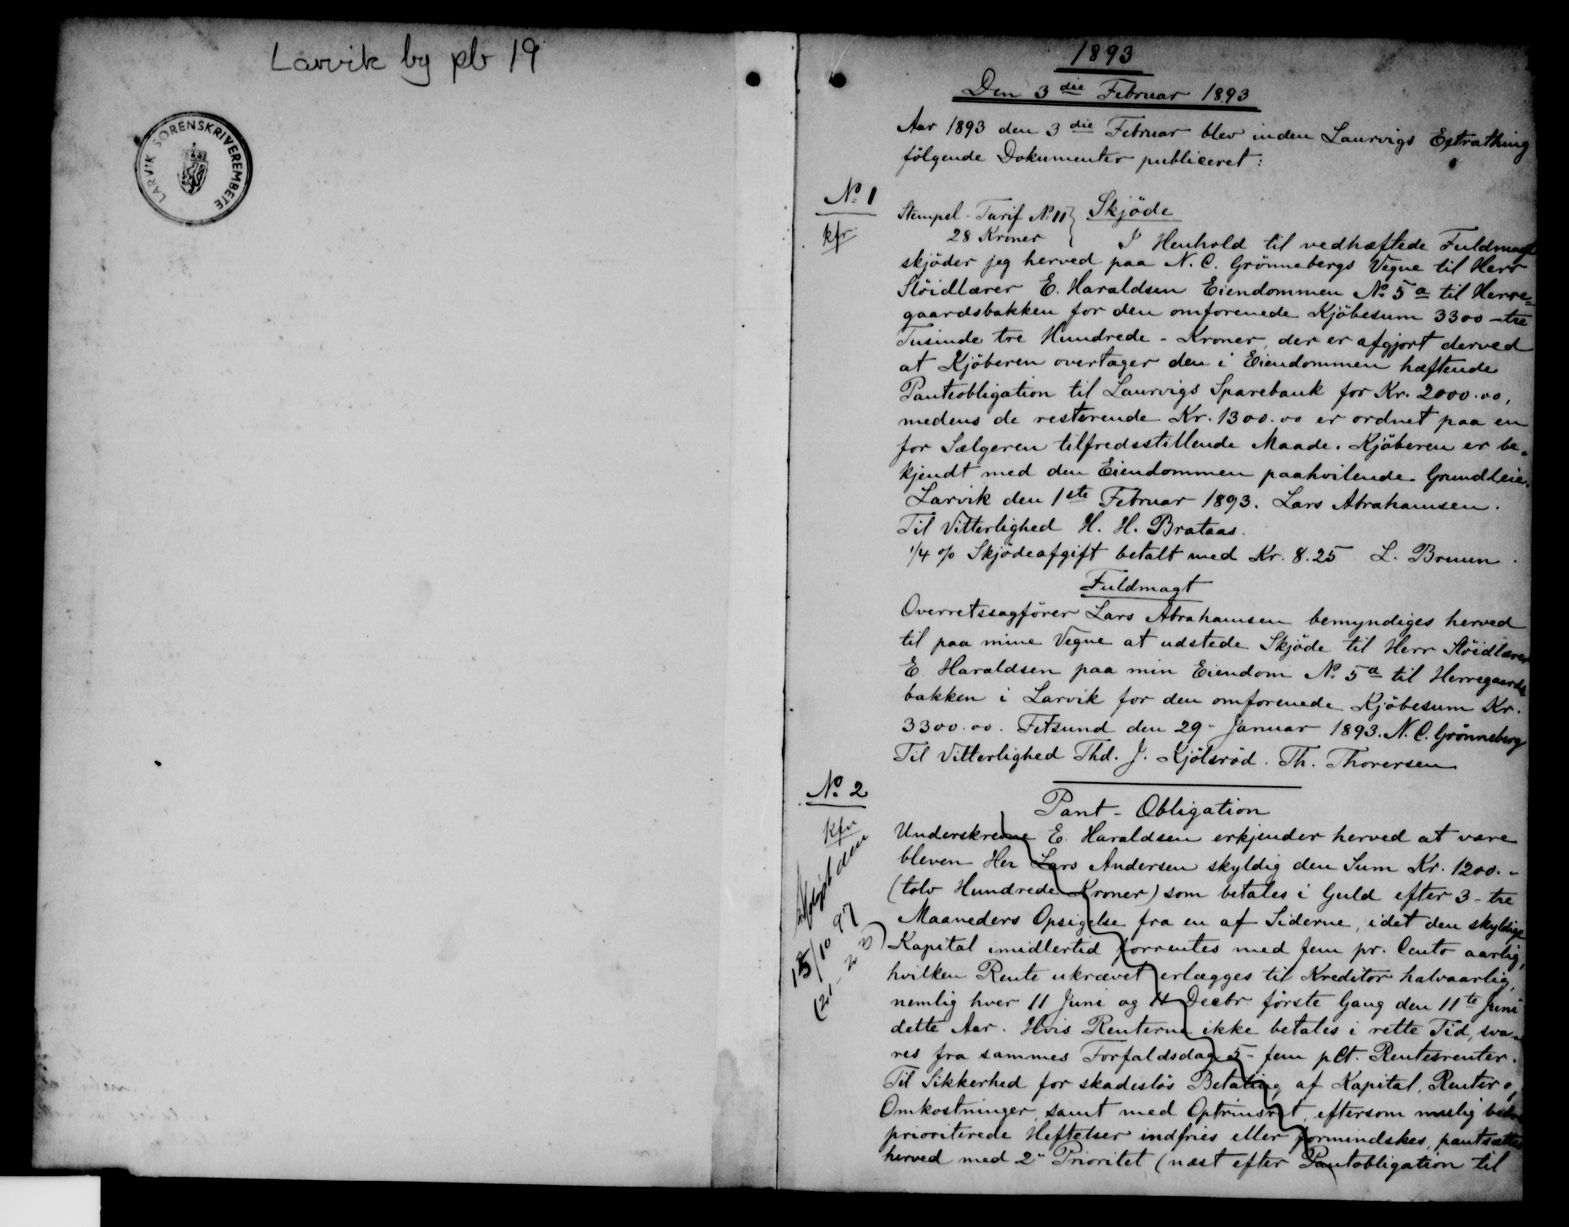 Larvik by pb 19
LARVIK SORENSKRIVEREMBETE
1893
Den 3die Februar 1893
Aar 1893 den 3die Februar blev inden Laurvigs Extrathing
følgende Dokumenter publiceret:
No 1
kfr.
Stempel-Tarif No 11} Skjöde
28 Kroner { I Henhold til vedhæftede Fuldmagt
skjöder jeg herved paa N. C. Grönnebergs Vegne til Herr
Slöidlærer E. Haraldsen Eiendommen No 5a til Herre=
gaardsbakken for den omforenede Kjöbesum 3300 – tre
Tusinde tre Hundrede – Kroner, der er afgjort derved
at Kjöberen overtager den i Eiendommen hæftende
Panteobligation til Laurvigs Sparebank for Kr. 2000.00,
medens de resterende Kr. 1300.00 er ordnet paa en
for Sælgeren tilfredsstillende Maade. Kjöberen er be=
kjendt med den Eiendommen paahvilende Grundleie.
Larvik den 1ste Februar 1893. Lars Abrahamsen.
Til Vitterlighed H. H. Brataas.
1/4 % Skjödeafgift betalt med Kr. 8.25 L. Bruun.
Fuldmagt
Overretssagförer Lars Abrahamsen bemyndiges herved
til paa mine Vegne at udstede Skjöde til Herr Slöidlærer
E. Haraldsen paa min Eiendom No 5a til Herregaards
bakken i Larvik for den omforenede Kjöbesum Kr.
3300.00. Fetsund den 29 Januar 1893. N. C. Grönneberg
Til Vitterlighed Thd. J. Kjölsröd. Th. Thorersen
No 2
kfr
Pant-Obligation
Afløst den
15/10 97
(21-23)
Underskrevne E. Haraldsen erkjender herved at være
bleven Her Lars Andersen skyldig den Sum Kr. 1200.-
(tolv Hundrede Kroner) som betales i Guld efter 3 – tre
Maaneders Opsigelse fra en af Siderne, idet den skyldige
Kapital imidlertid forrentes med fem pr. Cento aarlig,
hvilken Rente ukrævet erlægges til Kreditor halvaarlig,
nemlig hver 11 Juni og 11 Decbr förste Gang den 11te Juni
dette Aar. Hvis Renterne ikke betales i rette Tid, sva=
res fra sammes Forfaldsdag 5 – fem pCt. Rentesrenter.
Til Sikkerhed for skadeslös Betaling af Kapital, Renter o,
Omkostninger, samt med Optrinsret, eftersom mulig bedre
prioriterede Heftelser indfries eller formindskes, pantsættes
herved med 2n Prioritet (næst efter Pantobligation til